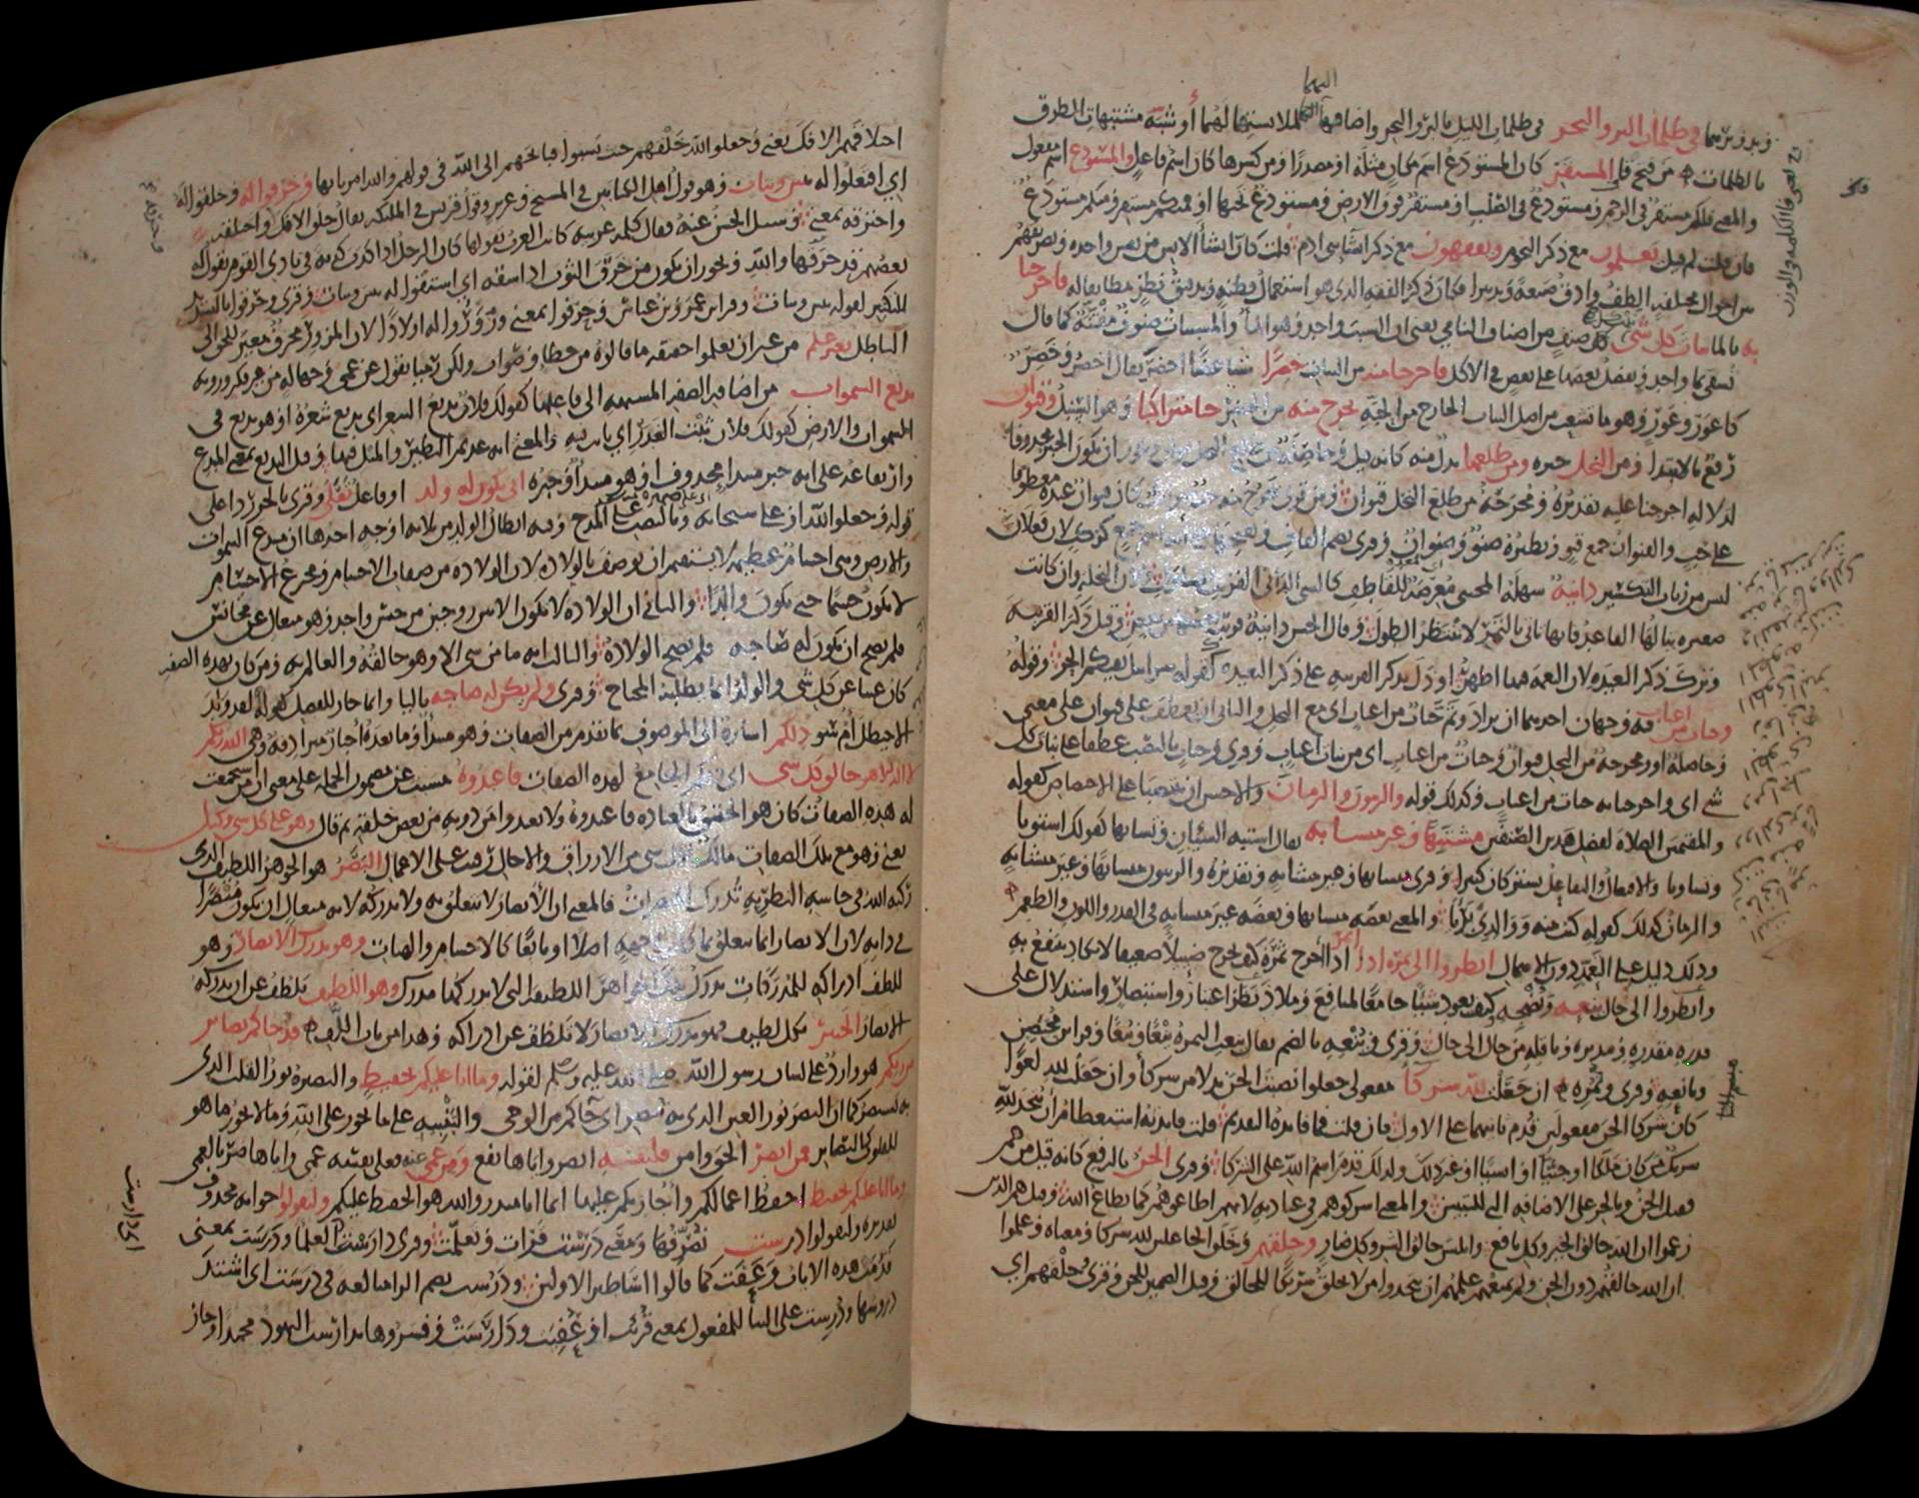 اليهما
وبدو برسما في ظلمات البر والبحر في ظلمات الليل بالبر والبحر واضافها اليهما لملابستها لهما أو شبه مشتبهات الطرق
بالظلمات من فتح قاف المستقر كان المستودع اسم مكان مثله او مصدرا ومن كسرها كان اسم فاعل والمستودع اسم مفعول
والمعنى فلكم مستقر في الرحم ومستودع في الصلب او مستقر فوق الارض ومستودع تحتها او فمنكم مستقر ومنكم مستودع
فان قلت لم قيل يعلمون مع ذكر النجوم ويفقهون مع ذكر انشا بني ادم قلت كان انشا الانس من نفس واحده وتصريفهم
بين احوال مختلفه الطف وادق صنعة وتدبيرا فكان ذكر الفقه الذي هو استعمال فطنة وتدقيق نظر مطابقا له فاخرجنا
به بالما نبات كل شي كل صنف من اصناف النامي يعنى ان السبب واحد وهو الما والمسببات صنوف مفتنة كما قال
تسقى بما واحد ونفضل بعضها على بعض في الاكل فاخرجنا منه من النبات خضرا شيا غضا اخضر يقال اخضر وخضر
كاعور وعور وهو ما تشعب من اصل النبات الخارج من الحبة نخرج منه من الخضر حبا متراكبا وهو السنبل وقنوان
رفع بالابتدا ومن النخل خبره ومن طلعها بدل منه كانه قيل وحاصلة من طلع النخل قنوان ويجوز ان يكون الخبر محذوفا
لدلاله اخرجنا عليه تقديره ومخرجة من طلع النخل قنوان ومن قرا يخرج منه حب متراكب كان قنوان عنده معطوفا
على حب والقنوان جمع قنو ونظيره صنو وصنوان وقرى بضم القاف وبفتحها على انه اسم جمع كركب لان فعلان
ليس من زيات التكسير دانية سهلة المجتنى معرضة للقاطف كالشى الدانى القريب المتناول ولان النخلة وان كانت
صغيره ينالها القاعد فانها تاتى بالثمر لا تنتظر الطول وقال الحسن دانية قريب بعضها من بعض وقيل ذكر القريبه
وترك ذكر البعيده لان النعمه فيها اظهر او دل بذكر القريبه على ذكر البعيده كقوله سرابيل تقيكم الحر وقوله
وجنات من اعناب فيه وجهان احدهما ان يراد وثم جنات من اعناب اى مع النخل والثانى ان يعطف على قنوان على معنى
وحاصلة او ومخرجة من النخل قنوان وجنات من اعناب اى من نبات اعناب وقرى وجنات بالنصب عطفا على نبات كل
شى اى واخرجنا به جنات من اعناب وكذلك قوله والزيتون والرمان والاحسن ان ينتصبا على الاختصاص كقوله
والمقيمين الصلاة لفضل هذين الصنفين مشتبها وغير متشابه يقال اشتبه الشيان وتشابها كقولك استويا
وتساويا والافتعال والتفاعل يشتركان كثيرا وقرى متشابها وغير متشابه وتقديره والزيتون متشابها وغير متشابه
والرمان كذلك كقوله كنت منه ووالدي بريا والمعنى بعضه متشابها وبعضه غير متشابه في القدر واللون والطعم
وذلك دليل على التعمد دون الاهمال انظروا الى ثمره اذا اثمر اذا اخرج ثمره كيف يخرج ضئيلا ضعيفا لا يكاد ينتفع به
وانظروا الى حال ينعه ونضجه كيف يعود شيئا جامعا لمنافع وملاذ نظر اعتبار واستبصار واستدلال على
قدرة مقدره ومدبره وناقله من حال الى حال وقرى وينعه بالضم يقال ينعت الثمرة ينعا وينعا وقرا ابن محيصن
ويانعه وقرى وثمره ان جعلت لله شركا مفعولى جعلوا نصبت الجن بدلا من شركا وان جعلت لله لغوا
كان شركا الجن مفعولين قدم ثانيهما على الاول فان قلت فما فايدة التقديم قلت فايدته استعظام ان يتخذ لله
شريك من كان ملكا او جنيا او انسيا او غير ذلك ولذلك قدم اسم الله على الشركا وقرى الجن بالرفع كانه قيل من هم
فقيل الجن وبالجر على الاضافه التى للتبيين والمعنى اشركوهم في عبادته لانهم اطاعوهم كما يطاع الله وقيل هم الذين
زعموا ان الله خالق الخير وكل نافع وابليس خالق الشر وكل ضار وخلقهم وخلق الجاعلين لله شركا ومعناه وعلموا
ان الله خالقهم دون الجن ولم يمنعهم علمهم ان يتخذوا من لا يخلق شريكا للخالق وقيل الضمير للجن وقرى وخلقهم اى
اختلاقهم الافك يعنى وجعلوا لله خلقهم حيث نسبوا قبايحهم الى الله في قولهم والله امرنا بها وخرقوا له وخلقوا له
اى افتعلوا له بنين وبنات وهو قول اهل الكتابين في المسيح وعزير وقول قريش في الملئكه يقال خلق الافك واختلقه
واخترقه بمعنى وسئل الحسن عنه فقال كلمه عربيه كانت العرب تقولها كان الرجل اذا كذب كذبة في نادى القوم يقول له
بعضهم قد خرقها والله ويجوز ان يكون من خرق الثوب اذا شقه اى اشتقوا له بنين وبنات وقرى وخرقوا بالتشديد
للتكثير لقوله بنين وبنات وقرا ابن عمر وابن عباس وحرفوا بمعنى وزوروا له اولادا لان المزور محرف مغير للحق الى
الباطل بغير علم من غير ان يعلموا حقيقه ما قالوه من خطا وصواب ولكن رميا بقول عن عمى وجهاله من غير فكر وروية
بديع السموات من اضافه الصفه المشبهه الى فاعلها كقولك فلان بديع الشعر اى بديع شعره او هو بديع في
السموات والارض كقولك فلان ثبت الغدر اى ثابت فيه والمعنى انه عديم النظير والمثل فيها وقيل البديع بمعنى المبدع
وارتفاعه على انه خبر مبتدا محذوف او هو مبتدا وخبره انى يكون له ولد او فاعل تعالى وقرى بالجر ردا على
قوله وجعلوا لله او على سبحانه وبالنصب على المدح وفيه ابطال الولد من ثلاثه اوجه احدها ان مبدع السموات
والارض وهى اجسام عظيمه لا يستقيم ان يوصف بالولاده لان الولاده من صفات الاجسام ومخترع الاجسام
لا يكون جسما حتى يكون والدا والثانى ان الولاده لا تكون الا بين زوجين من جنس واحد وهو متعال عن مجانس
فلم يصح ان يكون له صاحبه فلم تصح الولادة والثالث انه ما من شى الا وهو خالقه والعالم به ومن كان بهذه الصفه
كان غنيا عن كل شى والولد انما يطلبه المحتاج وقرى ولم يكن له صاحبه باليا وانما جاز للفصل كقوله لقد ولد
الاخيطل ام سوء ذلكم اشارة الى الموصوف بما تقدم من الصفات وهو مبتدا وما بعده اخبار مترادفه وهى الله ربكم
لا اله الا هو خالق كل شى اى ذلكم الجامع لهذه الصفات فاعبدوه مسبب عن مضمون الجمله على معنى ان من استجمعت
له هذه الصفات كان هو الحقيق بالعباده فاعبدوه ولا تعبدوا من دونه من بعض خلقه ثم قال وهو على كل شى وكيل
يعنى وهو مع تلك الصفات مالك لكل شى من الارزاق والاجال رقيب على الاعمال البصر هو الجوهر اللطيف الذى
ركبه الله في حاسة النظر به تدرك المبصرات فالمعنى ان الابصار لا تتعلق به ولا تدركه لانه متعال ان يكون مبصرا
في ذاته لان الابصار انما تتعلق بما كان في جهه اصلا او تابعا كالاجسام والهيات وهو يدرك الابصار وهو
للطف ادراكه للمدركات يدرك تلك الجواهر اللطيفه التى لا يدركها مدرك وهو اللطيف يلطف عن ان تدركه
الابصار الخبير بكل لطيف فهو يدرك الابصار لا تلطف عن ادراكه وهذا من باب اللف قد جاكم بصاير
من ربكم هو وارد على لسان رسول الله صلى الله عليه وسلم لقوله وما انا عليكم بحفيظ والبصيره نور القلب الذى
به يستبصر كما ان البصر نور العين الذى به تبصر اى جاكم من الوحى والتنبيه على ما يجوز على الله وما لا يجوز ما هو
للقلوب كالبصاير فمن ابصر الحق وامن فلنفسه ابصر واياها نفع ومن عمى عنه فعلى نفسه عمى واياها ضر بالعمى
وما انا عليكم بحفيظ احفظ اعمالكم واجازيكم عليها انما انا منذر والله هو الحفيظ عليكم وليقولوا جوابه محذوف
تقديره وليقولوا درست نصرفها ومعنى درست قرات وتعلمت وقرى دارست العلما ودرست بمعنى
قدمت هذه الايات وعفت كما قالوا اساطير الاولين ودرست بضم الرا مبالغه في درست اى اشتد
دروسها ودرست على البنا للمفعول بمعنى قرئت او عفيت ودارست وفسروها بدارست اليهود محمدا وجاز